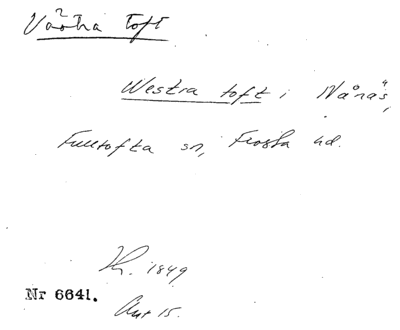 Västra toft
Westra toft i Nånäs,
Fulltofta sn, Frosta hd.
Th. 1849
Nr 6641.
Akt 15.